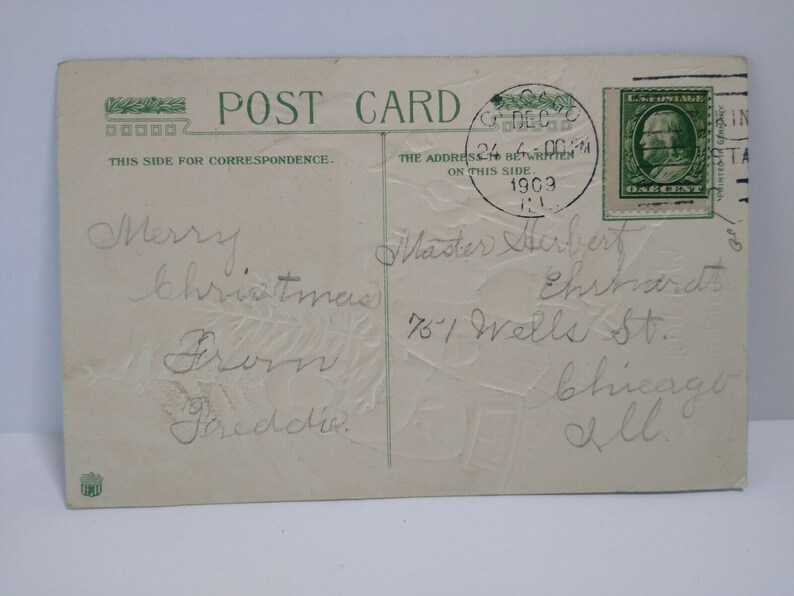 POST CARD
THIS SIDE FOR CORRESPONDENCE.
THE ADDRESS TO BE WRITTEN
ON THIS SIDE.
CHICAGO
DEC
24 4-00PM
1909
ILL.
U.S. POSTAGE
ONE CENT
PRINTED IN GERMANY
STA
Merry
Christmas
From
Freddie.
Master Herbert
Ehrhardt
751 Wells St.
Chicago
Ill.